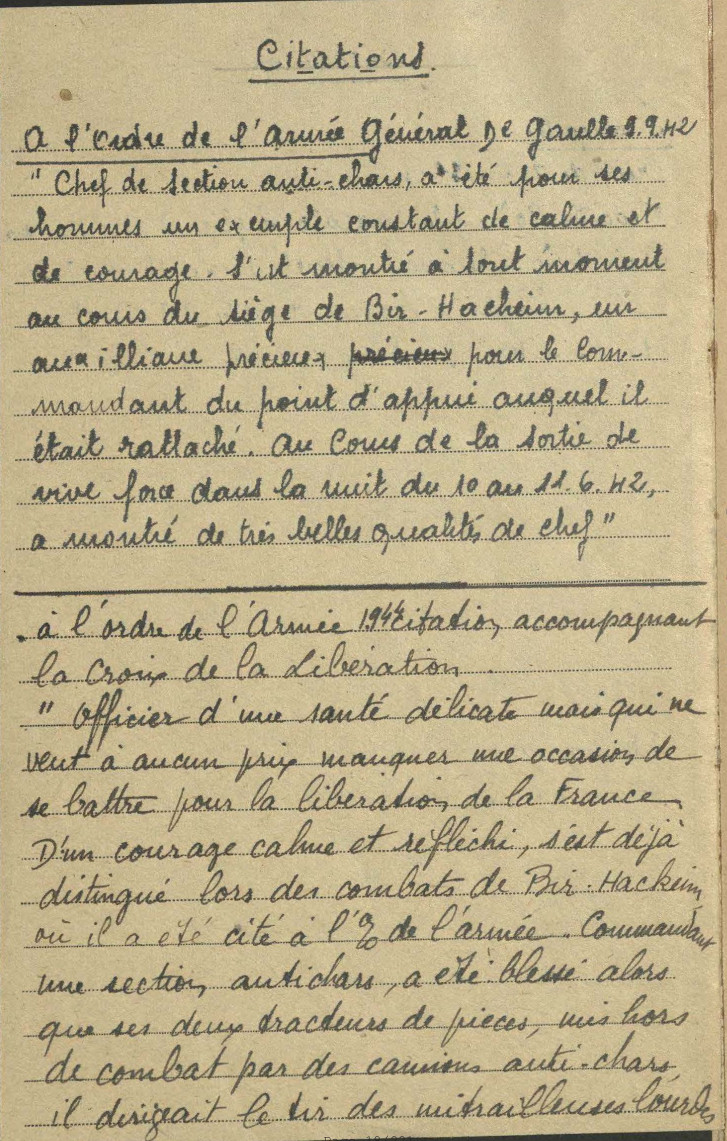 Citations.
A l'Ordre de l'Armée Général De Gaulle 9.9.42
" Chef de Section anti-chars, a été pour ses
hommes un exemple constant de calme et
de courage. S'est montré à tout moment
au cours du siège de Bir-Hacheim, un
auxilliaire précieux précieux pour le Com-
mandant du point d'appui auquel il
était rattaché. Au Cours de la Sortie de
vive force dans la nuit du 10 au 11.6.42,
a montré de très belles qualités de chef"
. à l'ordre de l'Armée 1944 citation accompagnant
la Croix de la Libération
" Officier d'une santé délicate mais qui ne
veut à aucun prix manquer une occasion de
se battre pour la libération de la France
D'un courage calme et réfléchi, s'est déjà
distingué lors des combats de Bir-Hackeim
où il a été cité à l'O de l'armée. Commandant
une section antichars, a été blessé alors
que ses deux tracteurs de pièces, mis hors
de combat par des camions anti-chars
il dirigeait le tir des mitrailleuses lourdes